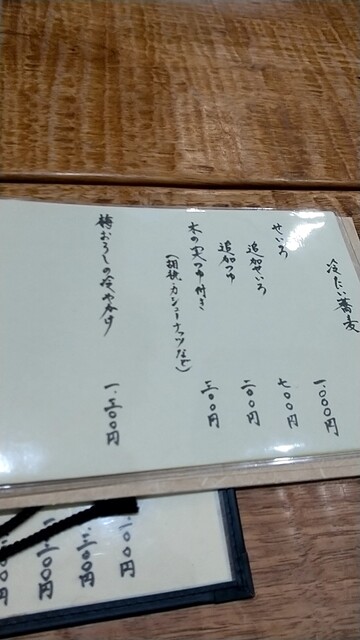 冷たい蕎麦
せいろ 一、〇〇〇円
追加せいろ 七〇〇円
追加つゆ 二〇〇円
木の実つゆ付き 三〇〇円
(胡桃、カシューナッツなど)
梅おろしの冷やかけ 一、三〇〇円